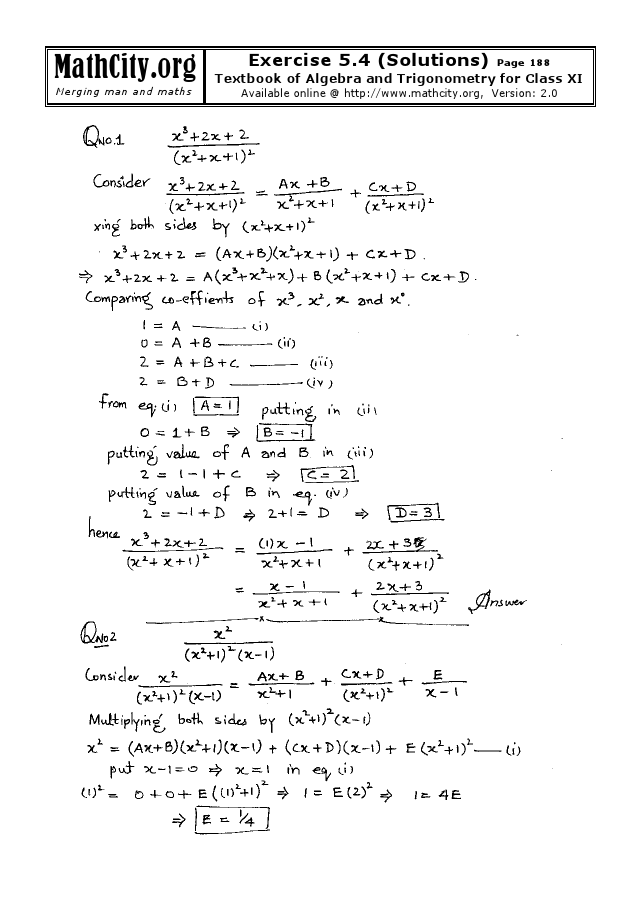 MathCity.org
Merging man and maths
Exercise 5.4 (Solutions) Page 188
Textbook of Algebra and Trigonometry for Class XI
Available online @ http://www.mathcity.org, Version: 2.0
QNo.1 (x³+2x+2)/(x²+x+1)²
Consider (x³+2x+2)/(x²+x+1)² = (Ax+B)/(x²+x+1) + (Cx+D)/(x²+x+1)²
xing both sides by (x²+x+1)²
x³+2x+2 = (Ax+B)(x²+x+1) + Cx+D.
⇒ x³+2x+2 = A(x³+x²+x) + B(x²+x+1) + Cx+D.
Comparing co-effients of x³, x², x and x°.
1 = A ——— (i)
0 = A + B ——— (ii)
2 = A + B + C ——— (iii)
2 = B + D ——— (iv)
from eq.(i) A = 1 putting in (ii)
0 = 1 + B ⇒ B = -1
putting value of A and B in (iii)
2 = 1 - 1 + C ⇒ C = 2
putting value of B in eq. (iv)
2 = -1 + D ⇒ 2+1 = D ⇒ D = 3
hence (x³+2x+2)/(x²+x+1)² = ((1)x - 1)/(x²+x+1) + (2x+3)/(x²+x+1)²
= (x-1)/(x²+x+1) + (2x+3)/(x²+x+1)² Answer
QNo2 x²/((x²+1)²(x-1))
Consider x²/((x²+1)²(x-1)) = (Ax+B)/(x²+1) + (Cx+D)/(x²+1)² + E/(x-1)
Multiplying both sides by (x²+1)²(x-1)
x² = (Ax+B)(x²+1)(x-1) + (Cx+D)(x-1) + E(x²+1)² — (i)
put x-1=0 ⇒ x=1 in eq (i)
(1)² = 0+0+E((1)²+1)² ⇒ 1 = E(2)² ⇒ 1 = 4E
⇒ E = 1/4